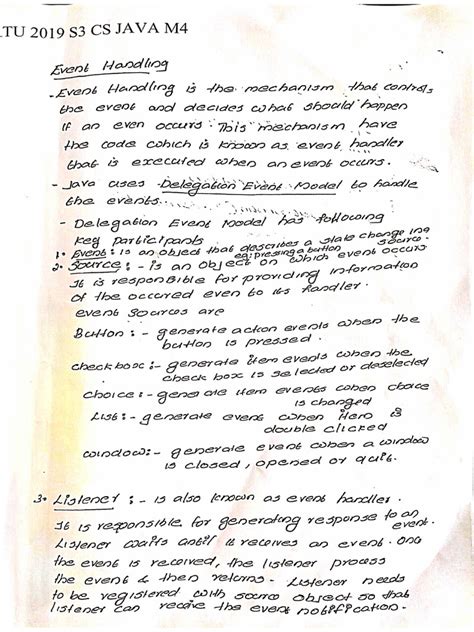 TU 2019 S3 CS JAVA M4
Event Handling
- Event Handling is the mechanism that controls
the event and decides what should happen
if an even occurs. This mechanism have
the code which is known as event handler
that is executed when an event occurs.
- Java uses Delegation Event Model to handle
the events.
- Delegation Event Model has following
key participants
1. Event : is an object that describes a state change in a source.
eg: pressing a button
2. Source : - is an object on which event occurs
It is responsible for providing information
of the occured even to its handler.
event sources are
Button : - generate action events when the
button is pressed.
check box : - generate item events when the
check box is selected or deselected
choice : - generate item events when choice
is changed
List : - generate event when item is
double clicked
window : - generate event when a window
is closed, opened or quit.
3. Listener : - is also known as event handler.
It is responsible for generating response to an
event.
Listener waits until it receives an event. Once
the event is received, the listener process
the event & then returns. Listener needs
to be registered with source object so that
listener can receive the event notification.